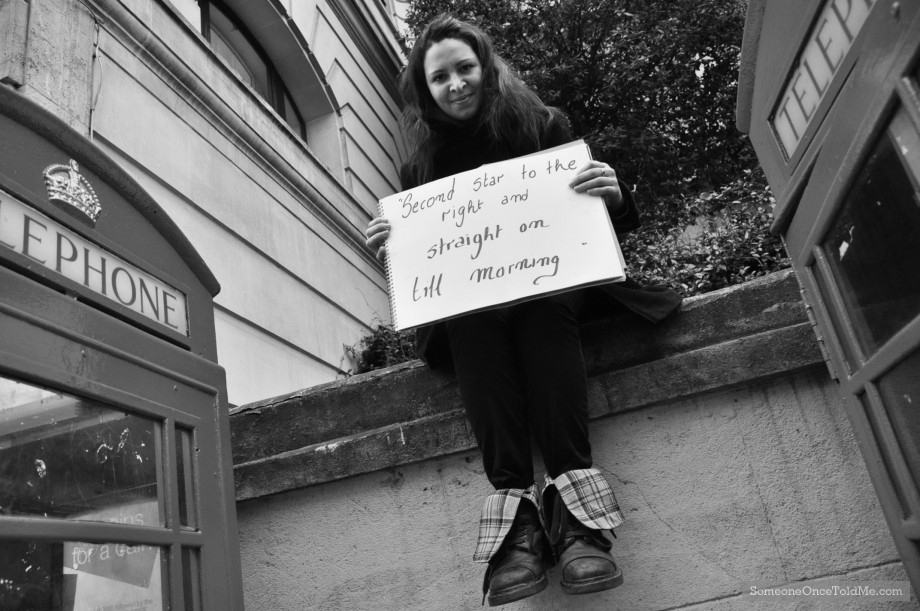 "Second star to the
right and
straight on
till morning"
TELEPHONE
TELEPH
for a
SomeoneOnceToldMe.com